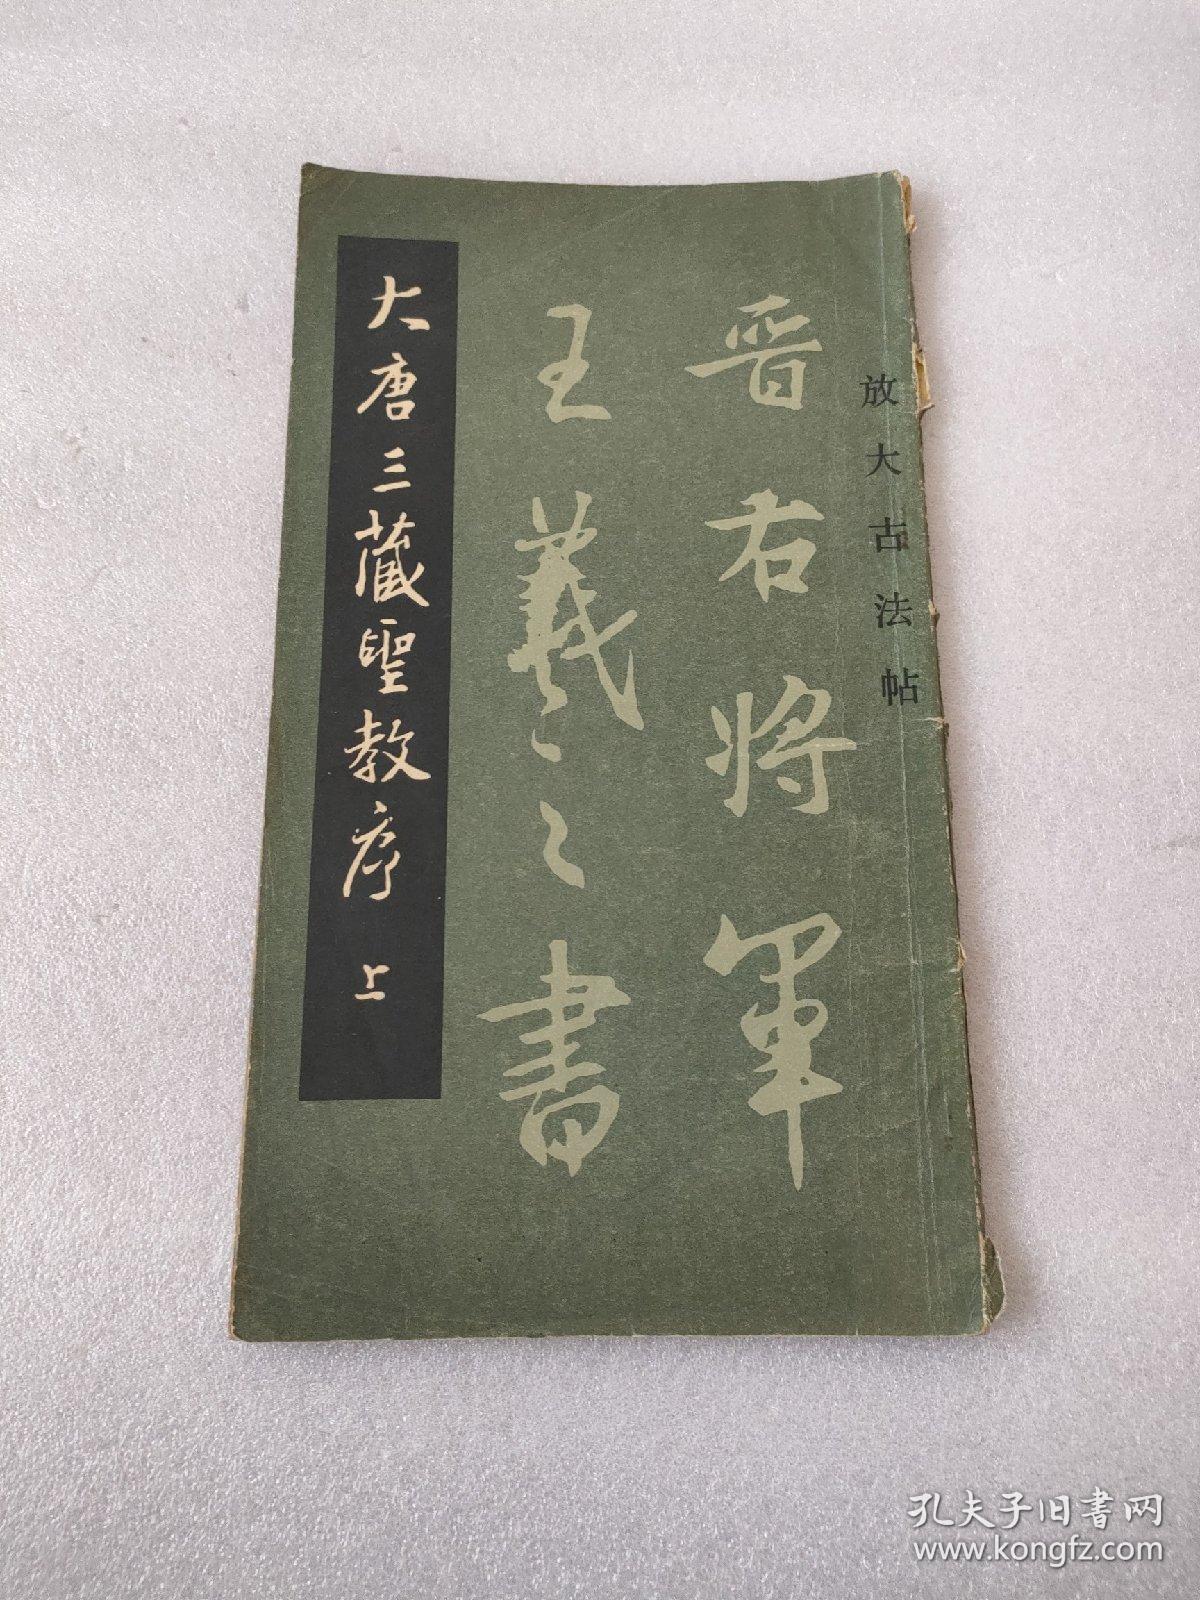 放大古法帖
晋右将軍
王羲之書
大唐三藏聖教序 上
孔夫子旧書网
www.kongfz.com